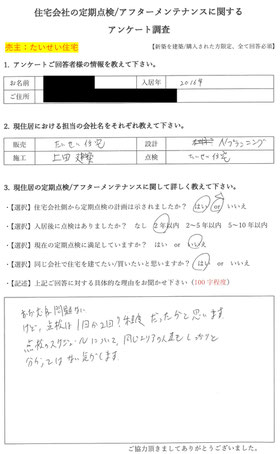 住宅会社の定期点検/アフターメンテナンスに関する
アンケート調査
売主：たいせい住宅
【新築を建築/購入された方限定。全て回答必須】
1. アンケートご回答者様の情報を教えて下さい。
お名前 入居年 2016年
ご住所
2. 現住居における担当の会社名をそれぞれ教えて下さい。
販売 たいせい住宅 設計 Nプランニング
施工 上田建築 点検 たいせい住宅
3. 現住居の定期点検/アフターメンテナンスに関して詳しく教えて下さい。
・【選択】住宅会社側から定期点検の計画は示されましたか？ はい or いいえ
・【選択】入居後に点検はありましたか？ なし 2年以内 2～5年以内 5～10年以内
・【選択】現在の定期点検に満足していますか？ はい or いいえ
・【選択】同じ会社で住宅を建てたい/買いたいと思いますか？ はい or いいえ
・【記述】上記ご回答に対する具体的な理由をお聞かせ下さい（100字程度）
問題ない
けど、点検は1回か2回？程度だったかと思います
点検のスケジュールについて、同じエリアの人達もしっかりと
分かっては無い気がします。
ご協力頂きましてありがとうございました。